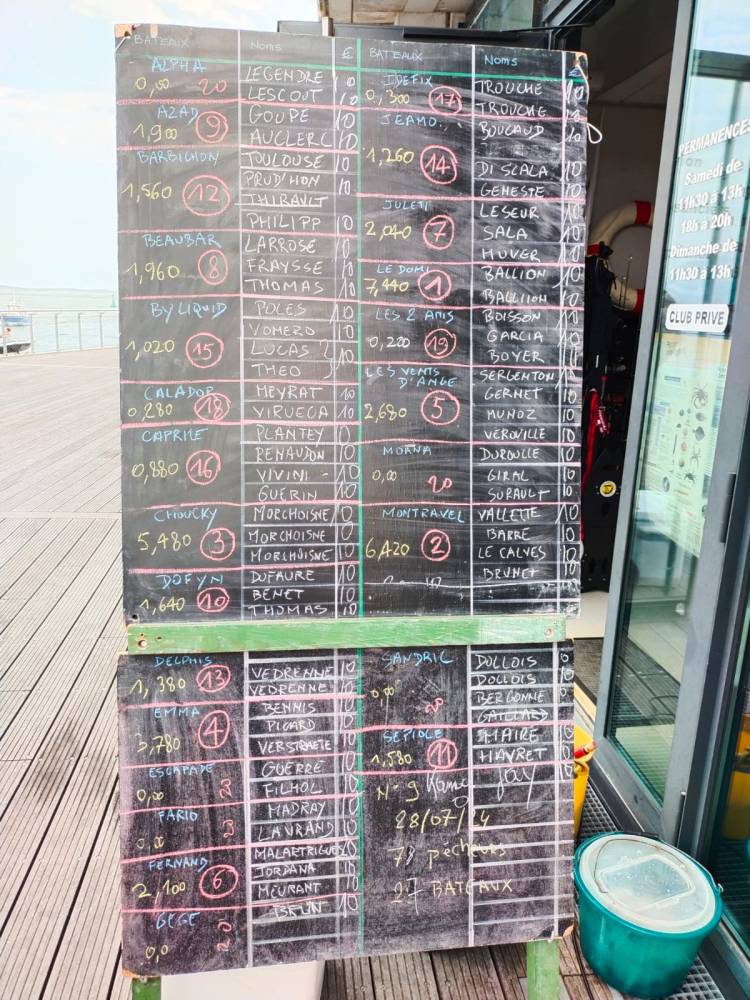 BATEAUX NOMS €
ALPHA LEGENDRE 10
0,00 20 LESCOUT 10
AZAD GOUPE 10
1,900 9 AUCLERC 10
BARBICHON TOULOUSE 10
1,560 12 PRUD'HON 10
THIBAULT
PHILIPP 10
BEAUBAR LARROSE 10
1,960 8 FRAYSSE 10
THOMAS 10
BY LIQUID POLES 10
VOMERO
1,020 15 LUCAS 10
THEO
CALADOR MEYRAT 10
0,280 18 VIRUEGA 10
CAPRILE PLANTEY 10
0,880 16 RENAUDON 10
VIVINI - 10
GUERIN 10
CHOUCKY MORCHOISNE 10
5,480 3 MORCHOISNE 10
MORCHOISNE 10
DOFYN DUFAURE 10
1,640 10 BENET 10
THOMAS 10
DELPHIS VEDRENNE 10
1,380 13 VEDRENNE 10
EMMA BENNIS 10
3,780 4 PICARD 10
VERSTRAETE 10
ESCAPADE GUERRE 10
0,00 20 FILHOL 10
FARIO MADRAY 10
0,00 20 LAVRAND 10
FERNAND MALARTRIGUES 10
2,100 6 JORDANA 10
MEURANT 10
GEGE BRUN 10
0,0 20
BATEAUX NOMS €
IDEFIX TROUCHE 10
0,300 17 TROUCHE 10
JEAMO.. BOUCAUD 10
1,260 14 DI SCALA 10
GENESTE 10
JULETI LESEUR 10
2,040 7 SALA 10
HUVER 10
LE DOMI BALLION 10
7,440 1 BALLIION 10
LES 2 AMIS BOISSON 10
0,220 19 GARCIA 10
BOYER 10
LES VENTS SERGENTON 10
D'ANGE GERNET 10
2,680 5 MUNOZ 10
VEROUILLE 10
MOANA DUROULLE 10
0,00 20 GIRAL 10
SURAULT 10
MONTRAVEL VALLETTE 10
6,420 2 BARRE 10
LE CALVES 10
BRUNET 10
SANDRIC DOLLOIS 10
0,00 20 DOLLOIS 10
BERGONNE 10
GAILLARD 10
SEPIOLE MAIRE 10
1,580 11 HAVRET 10
N° 9
28/07/
pêcheurs
27 BATEAUX
PERMANENCES
Samedi de
11h30 à 13h
18h à 20h
Dimanche de
11h30 à 13h
CLUB PRIVE